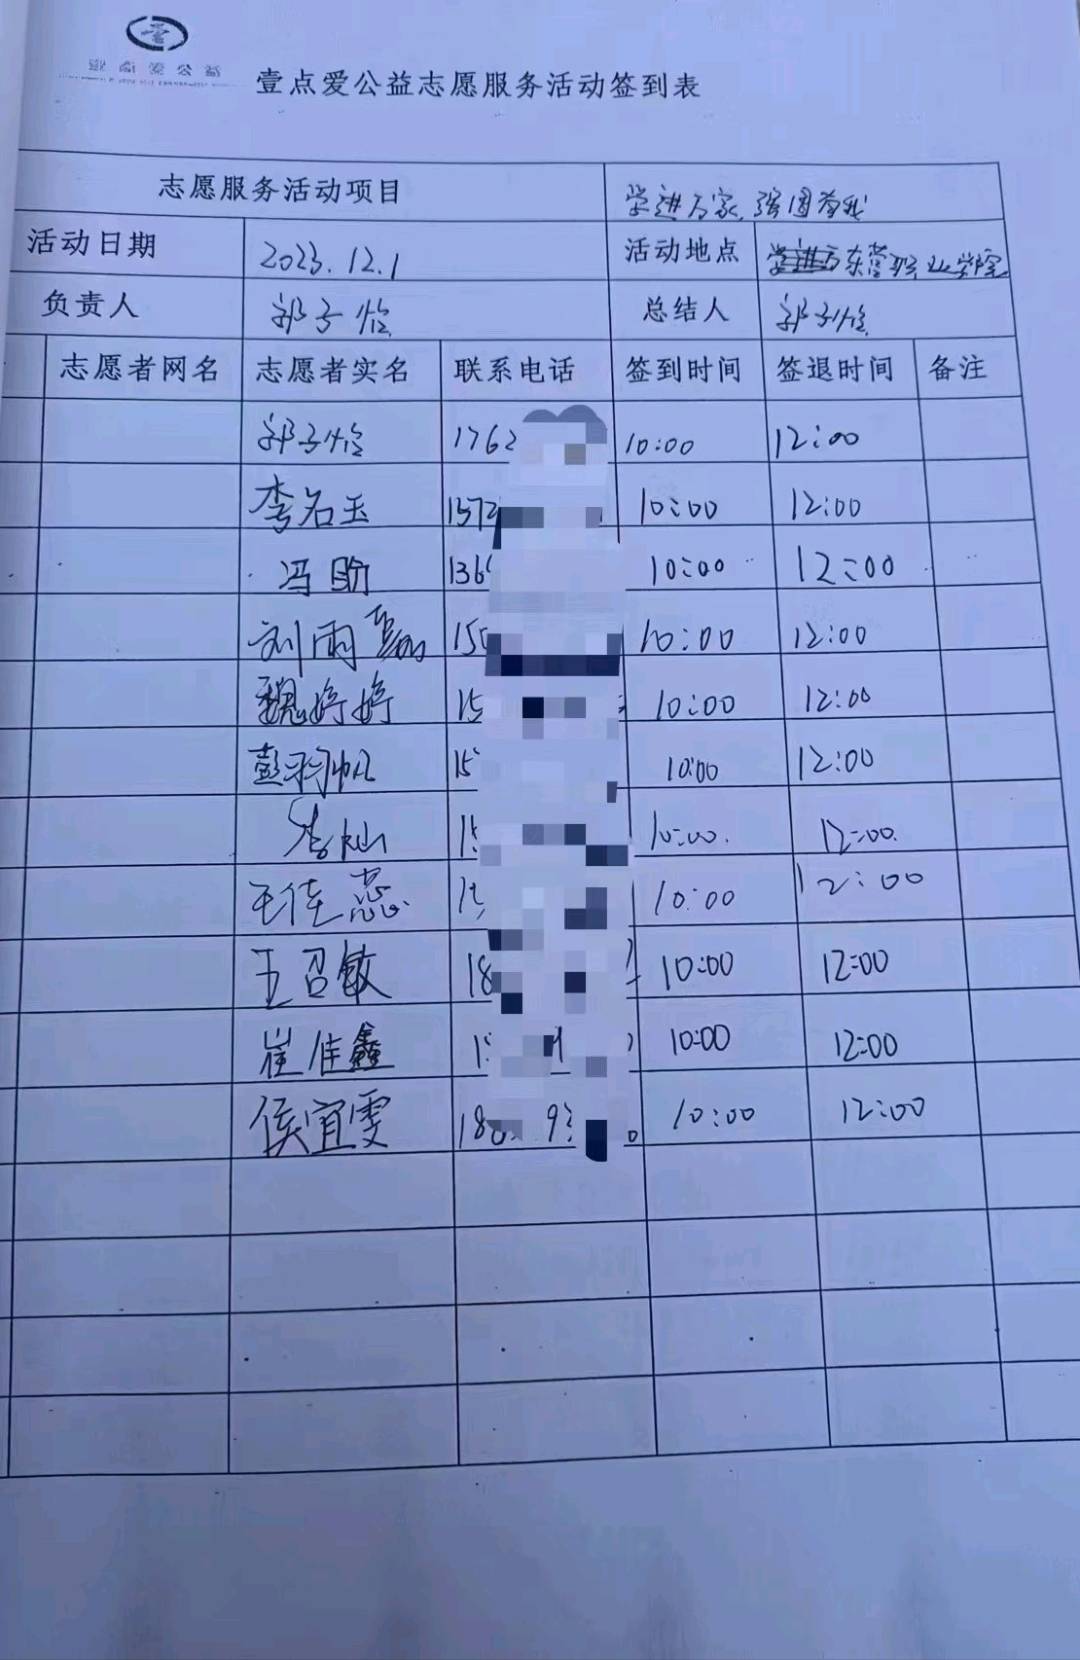 壹点爱公益
壹点爱公益志愿服务活动签到表
志愿服务活动项目 学进万家,强国有我
活动日期 2023.12.1 活动地点 东营职业学院
负责人 郭子怡 总结人 郭子怡
志愿者网名 志愿者实名 联系电话 签到时间 签退时间 备注
郭子怡 1762 10:00 12:00
李名玉 1572 10:00 12:00
冯盼 136 10:00 12:00
刘雨 150 10:00 12:00
魏婷婷 15 10:00 12:00
彭羽帆 15 10:00 12:00
李灿 15 10:00. 12:00.
王佳蕊 15 10:00 12:00
王召敏 18 10:00 12:00
崔佳鑫 1 10:00 12:00
侯宜雯 18 93 0 10:00 12:00